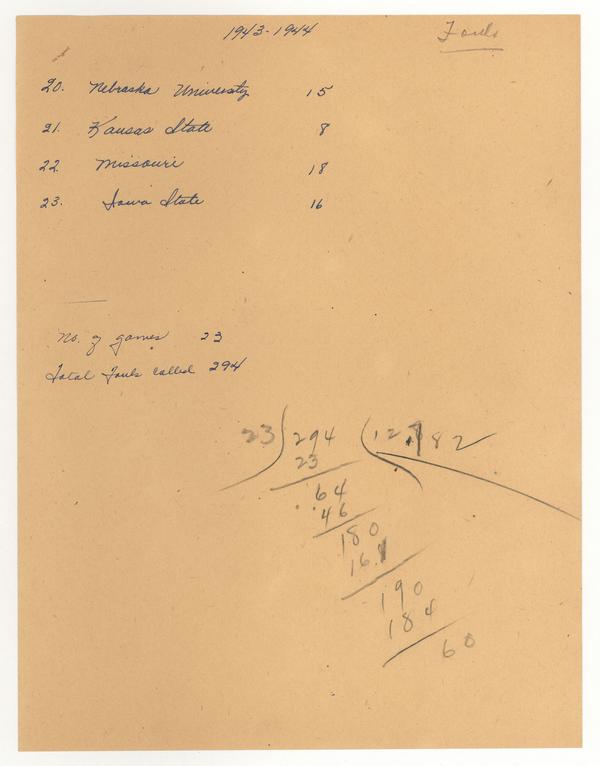 1943-1944 Fouls
20. Nebraska University 15
21. Kansas State 8
22. Missouri 18
23. Iowa State 16
No. of games 23
Total Fouls called 294
23 294 12.782
23
64
46
180
161
190
184
60